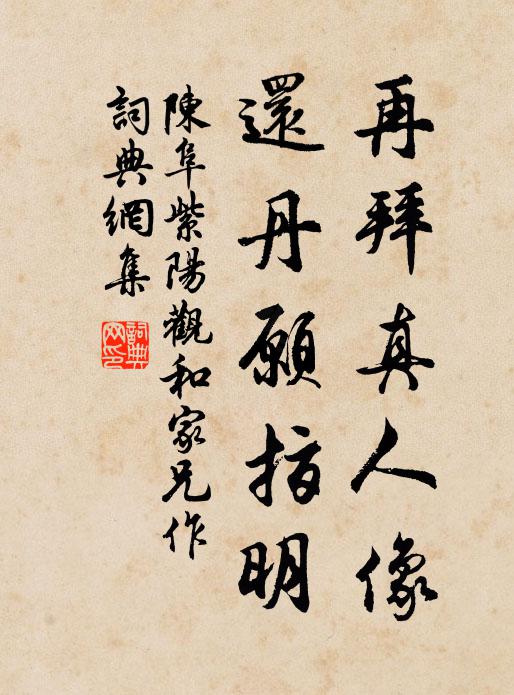 再拜真人像
還丹願指明
陳阜紫陽觀和家兄作
詞典網集
詞典
网印